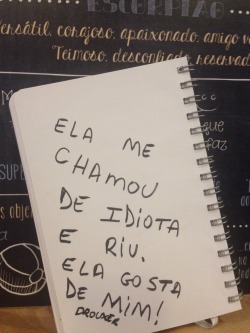 ESCORPIÃO
Versátil, corajoso, apaixonado, amigo
Teimoso, desconfiado, reservad
ELA ME
CHAMOU
DE IDIOTA
E RIU.
ELA GOSTA
DE MIM!
que
faz
SUPE
os obje